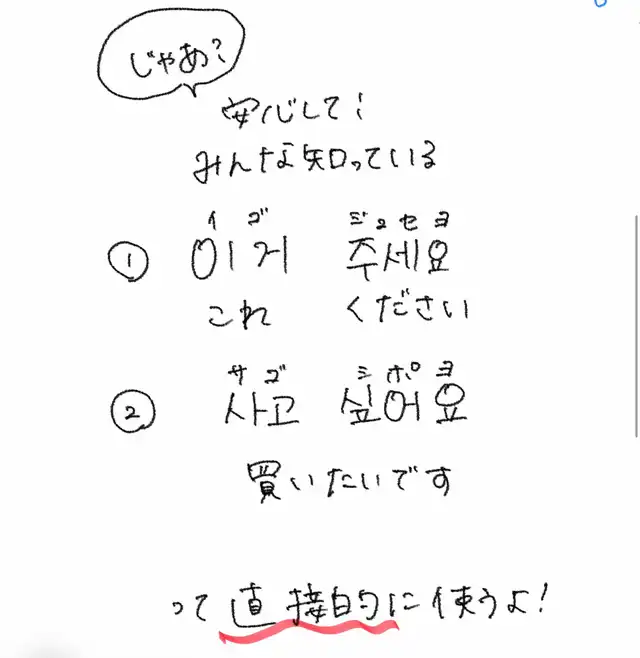 じゃあ?
安心して!
みんな知っている
イゴ ジュセヨ
① 이거 주세요
これ ください
サゴ シポヨ
② 사고 싶어요
買いたいです
って直接的に使うよ!